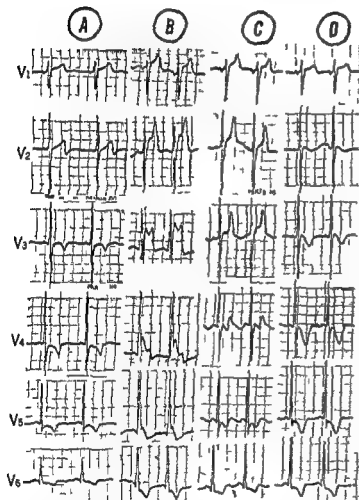 A B C D
V1
V2
V3
V4
V5
V6